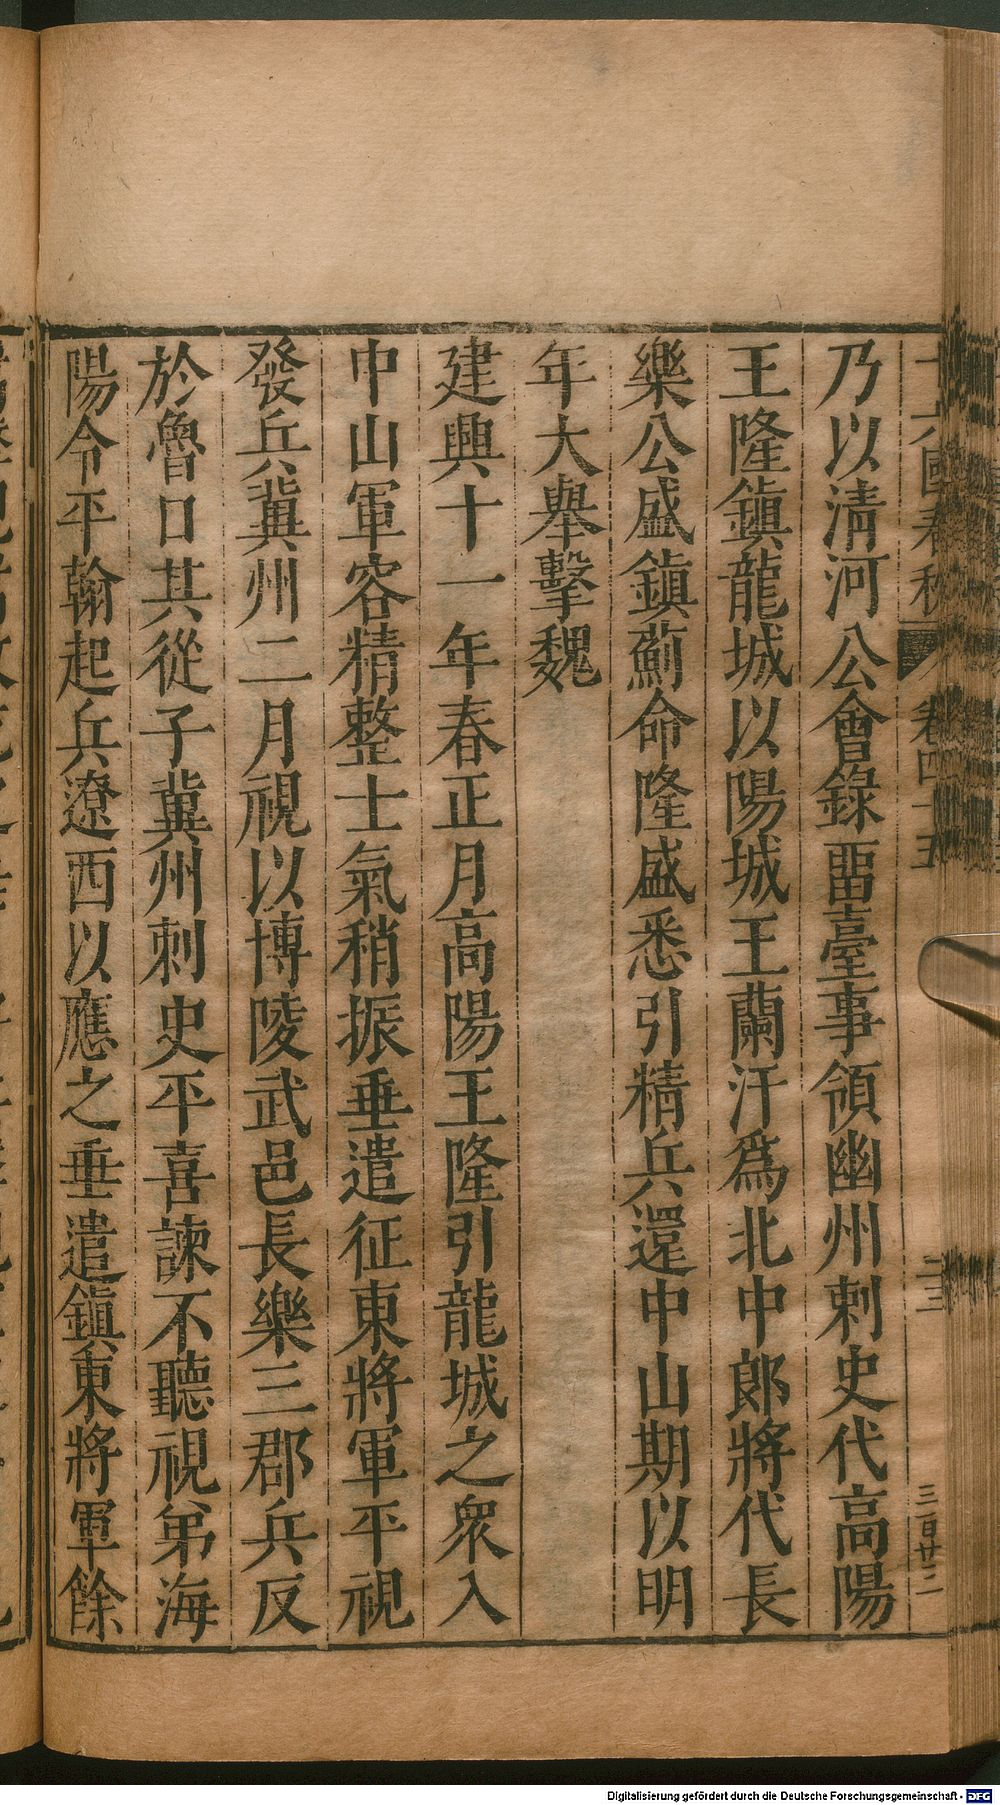 十六國春秋 卷四十五 二三
三百廿三
乃以清河公會錄畱臺事領幽州刺史代高陽
王隆鎮龍城以陽城王蘭汗爲北中郎將代長
樂公盛鎮薊命隆盛悉引精兵還中山期以明
年大舉擊魏
建興十一年春正月高陽王隆引龍城之衆入
中山軍容精整士氣稍振垂遣征東將軍平視
發兵冀州二月視以博陵武邑長樂三郡兵反
於魯口其從子冀州刺史平喜諫不聽視弟海
陽令平翰起兵遼西以應之垂遣鎮東將軍餘
Digitalisierung gefördert durch die Deutsche Forschungsgemeinschaft - DFG